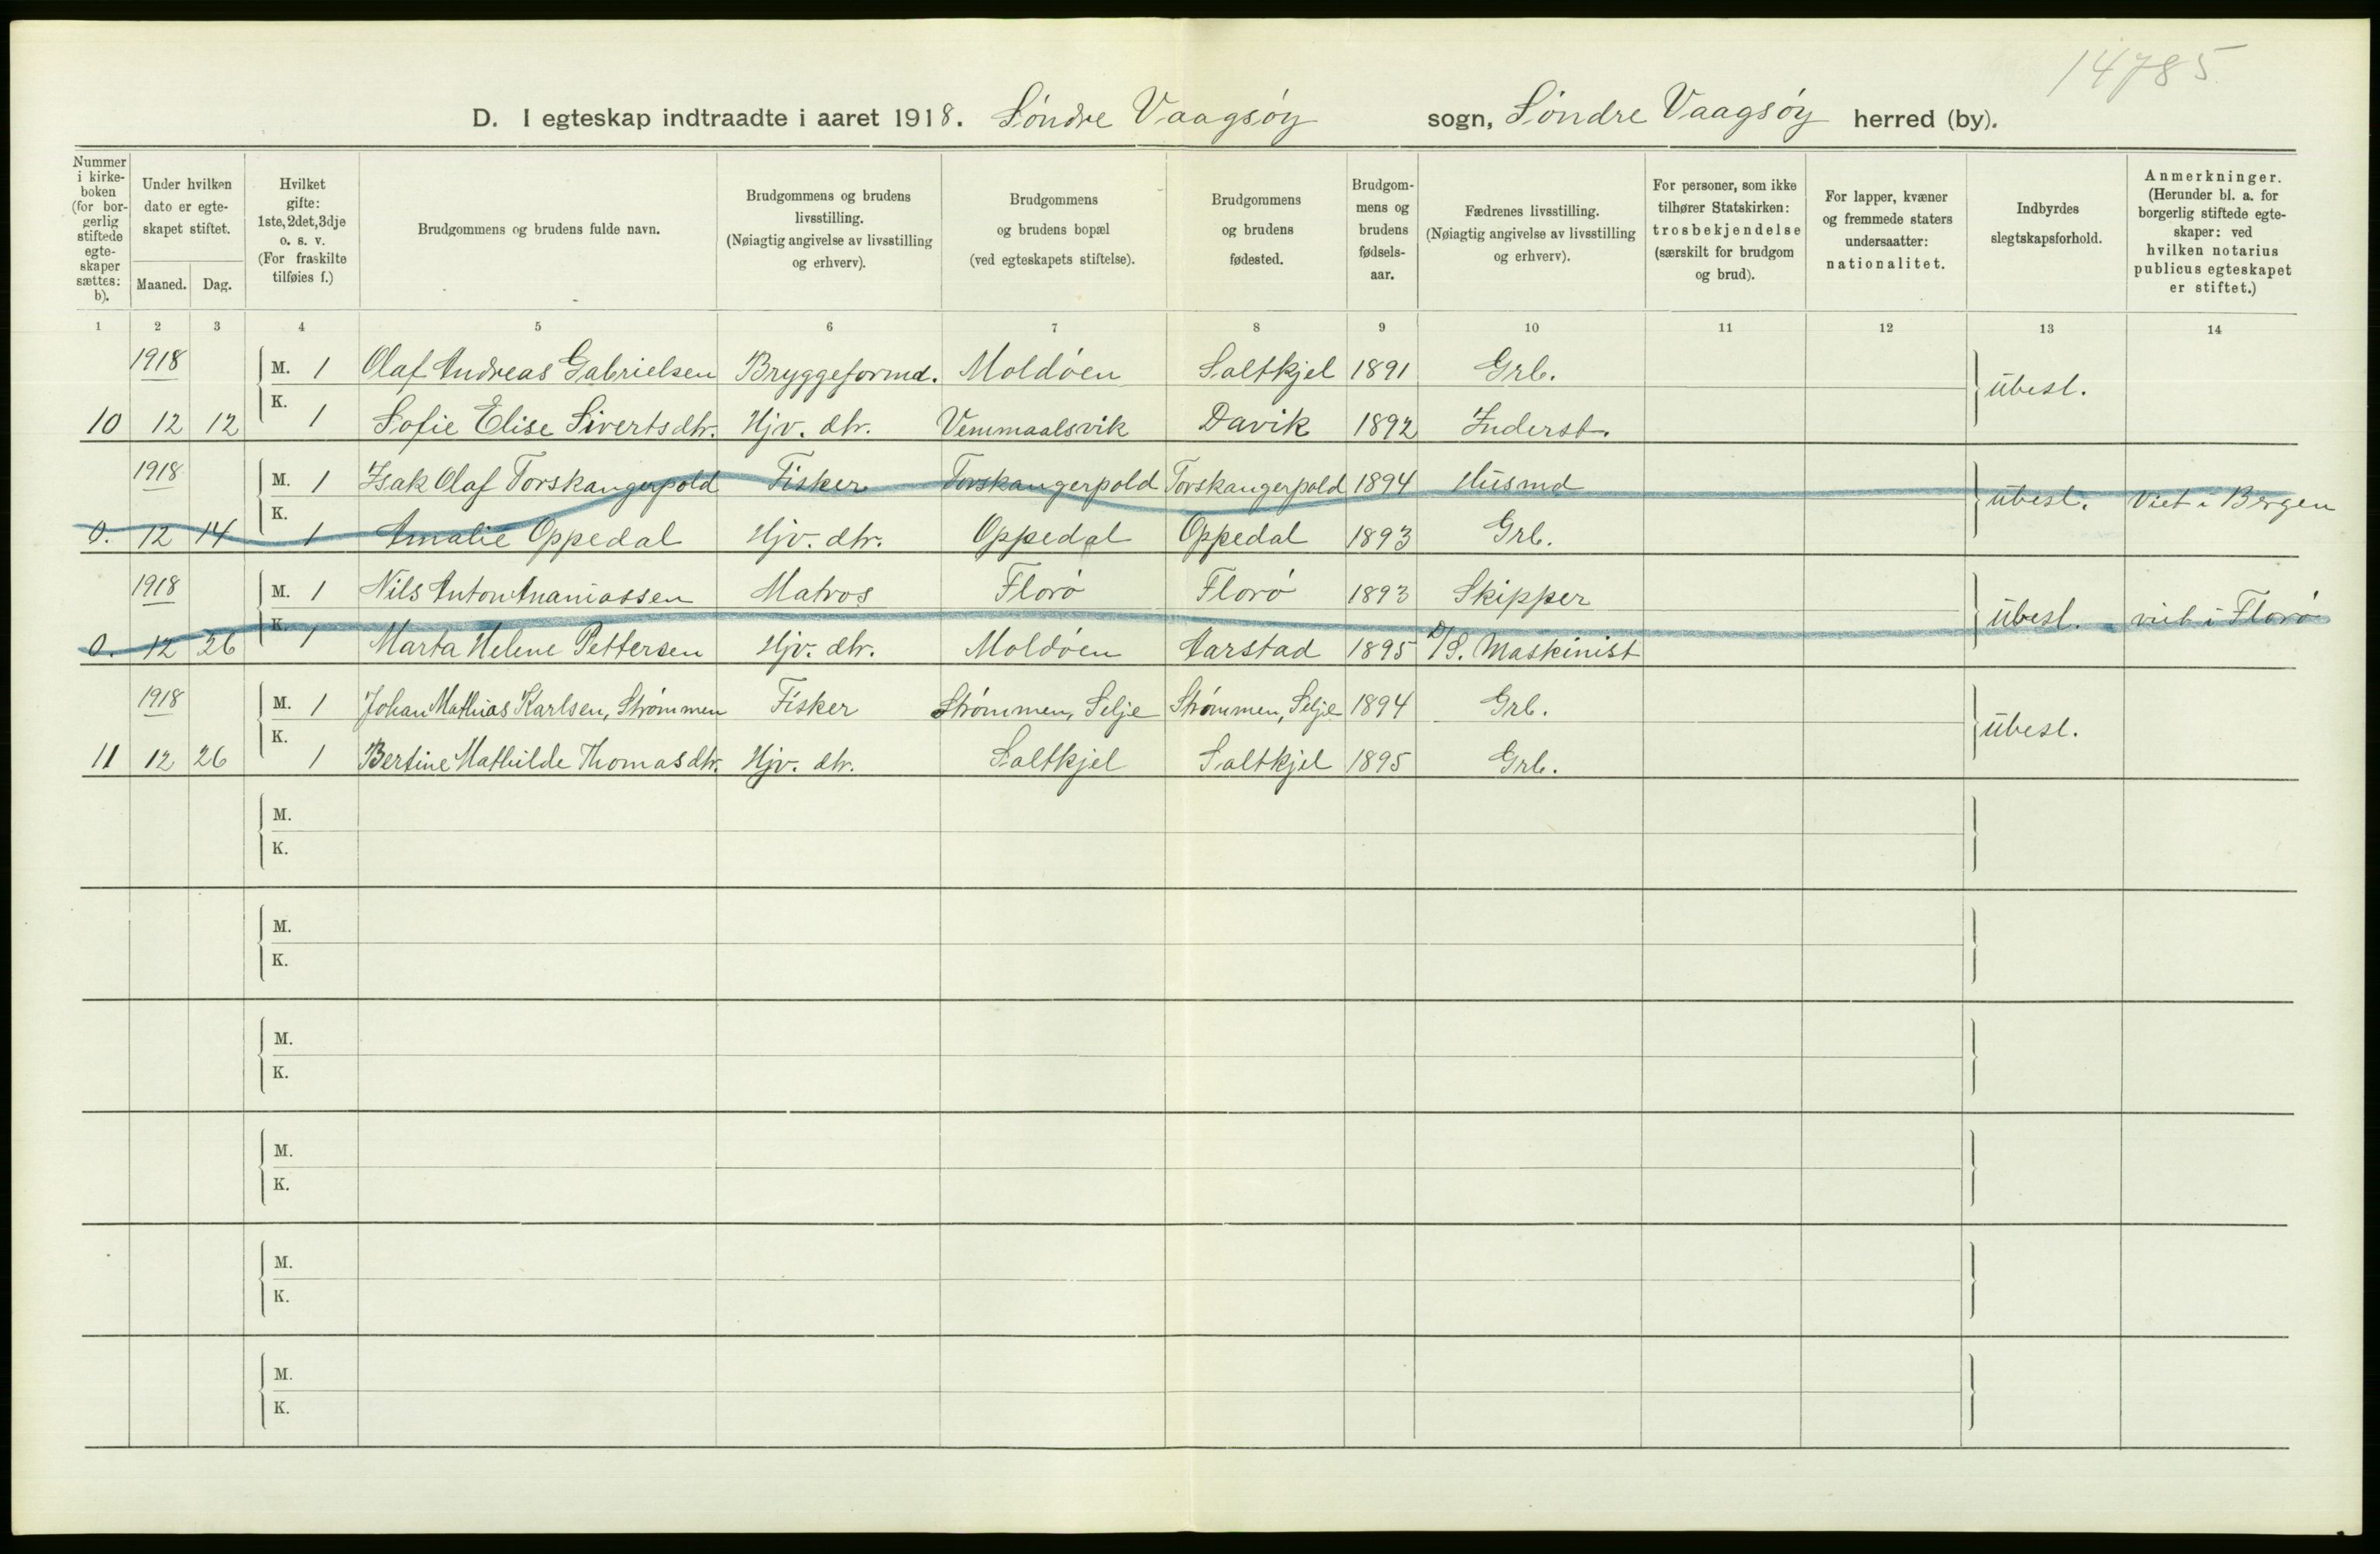 14785
D. I egteskap indtraadte i aaret 1918. Søndre Vaagsøy sogn, Søndre Vaagsøy herred (by).
Nummer i kirke-boken (for bor-gerlig stiftede egte-skaper sættes: b).
Under hvilken dato er egte-skapet stiftet.
Maaned. Dag.
Hvilket gifte: 1ste, 2det, 3dje o. s. v. (For fraskilte tilføies f.)
Brudgommens og brudens fulde navn.
Brudgommens og brudens livsstilling. (Nøiagtig angivelse av livsstilling og erhverv).
Brudgommens og brudens bopæl (ved egteskapets stiftelse).
Brudgommens og brudens fødested.
Brudgom-mens og brudens fødsels-aar.
Fædrenes livsstilling. (Nøiagtig angivelse av livsstilling og erhverv).
For personer, som ikke tilhører Statskirken: trosbekjendelse (særskilt for brudgom og brud).
For lapper, kvæner og fremmede staters undersaatter: nationalitet.
Indbyrdes slegtskapsforhold.
Anmerkninger. (Herunder bl. a. for borgerlig stiftede egte-skaper: ved hvilken notarius publicus egteskapet er stiftet.)
1 2 3 4 5 6 7 8 9 10 11 12 13 14
1918 M. 1 Olaf Andreas Gabrielsen Bryggeformd. Moldøen Saltkjel 1891 Grb. ubesl.
10 12 12 K. 1 Sofie Elise Sivertsdtr. Hjv. dtr. Vemmaalsvik Davik 1892 Inderst.
1918 M. 1 Isak Olaf Torskangerpold Fisker Torskangerpold Torskangerpold 1894 Husmd ubesl. Viet i Bergen
0. 12 14 K. 1 Amalie Oppedal Hjv. dtr. Oppedal Oppedal 1893 Grb.
1918 M. 1 Nils Anton Ananiassen Matros Florø Florø 1893 Skipper ubesl. viet i Florø
0. 12 26 K. 1 Marta Helene Pettersen Hjv. dtr. Moldøen Aarstad 1895 D/S. Maskinist
1918 M. 1 Johan Mathias Karlsen, Strømmen Fisker Strømmen, Selje Strømmen, Selje 1894 Grb. ubesl.
11 12 26 K. 1 Bertine Mathilde Thomasdtr. Hjv. dtr. Saltkjel Saltkjel 1895 Grb.
M.
K.
M.
K.
M.
K.
M.
K.
M.
K.
M.
K.